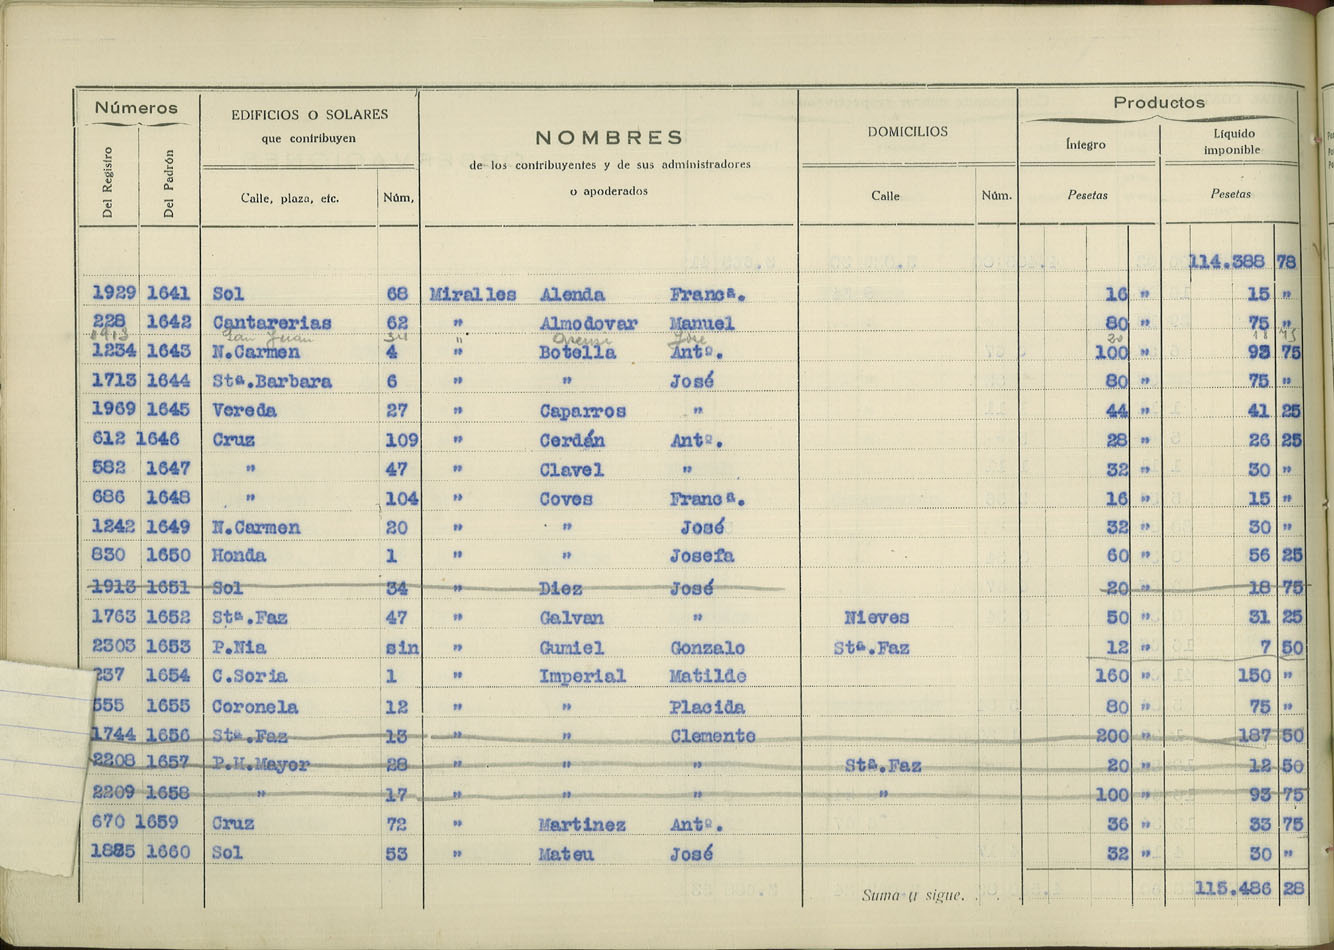 Números EDIFICIOS O SOLARES que contribuyen NOMBRES de los contribuyentes y de sus administradores o apoderados DOMICILIOS Productos
Íntegro Líquido imponible
Del Registro Del Padrón Calle, plaza, etc. Núm. Calle Núm. Pesetas Pesetas
114.388 78
1929 1641 Sol 68 Miralles Alenda Francª. 16 " 15 "
228 1642 Cantarerias 62 " Almodovar Manuel 80 " 75 "
1913 San Juan 34 " José 20 18 75
1234 1643 N.Carmen 4 " Botella Antº. 100 " 93 75
1713 1644 Stª.Barbara 6 " " José 80 " 75 "
1969 1645 Vereda 27 " Caparros " 44 " 41 25
612 1646 Cruz 109 " Cerdán Antº. 28 " 26 25
582 1647 " 47 " Clavel " 32 " 30 "
686 1648 " 104 " Coves Francª. 16 " 15 "
1242 1649 N.Carmen 20 " " José 32 " 30 "
830 1650 Honda 1 " " Josefa 60 " 56 25
1913 1651 Sol 34 " Diez José 20 " 18 75
1763 1652 Stª.Faz 47 " Galvan " Nieves 50 " 31 25
2303 1653 P.Nia sin " Gumiel Gonzalo Stª.Faz 12 " 7 50
237 1654 C.Soria 1 " Imperial Matilde 160 " 150 "
555 1655 Coronela 12 " " Placida 80 " 75 "
1744 1656 Stª.Faz 13 " " Clemente 200 " 187 50
2208 1657 P.H.Mayor 28 " " " Stª.Faz 20 " 12 50
2209 1658 " 17 " " " " 100 " 93 75
670 1659 Cruz 72 " Martinez Antº. 36 " 33 75
1885 1660 Sol 53 " Mateu José 32 " 30 "
Suma y sigue. . . 115.486 28